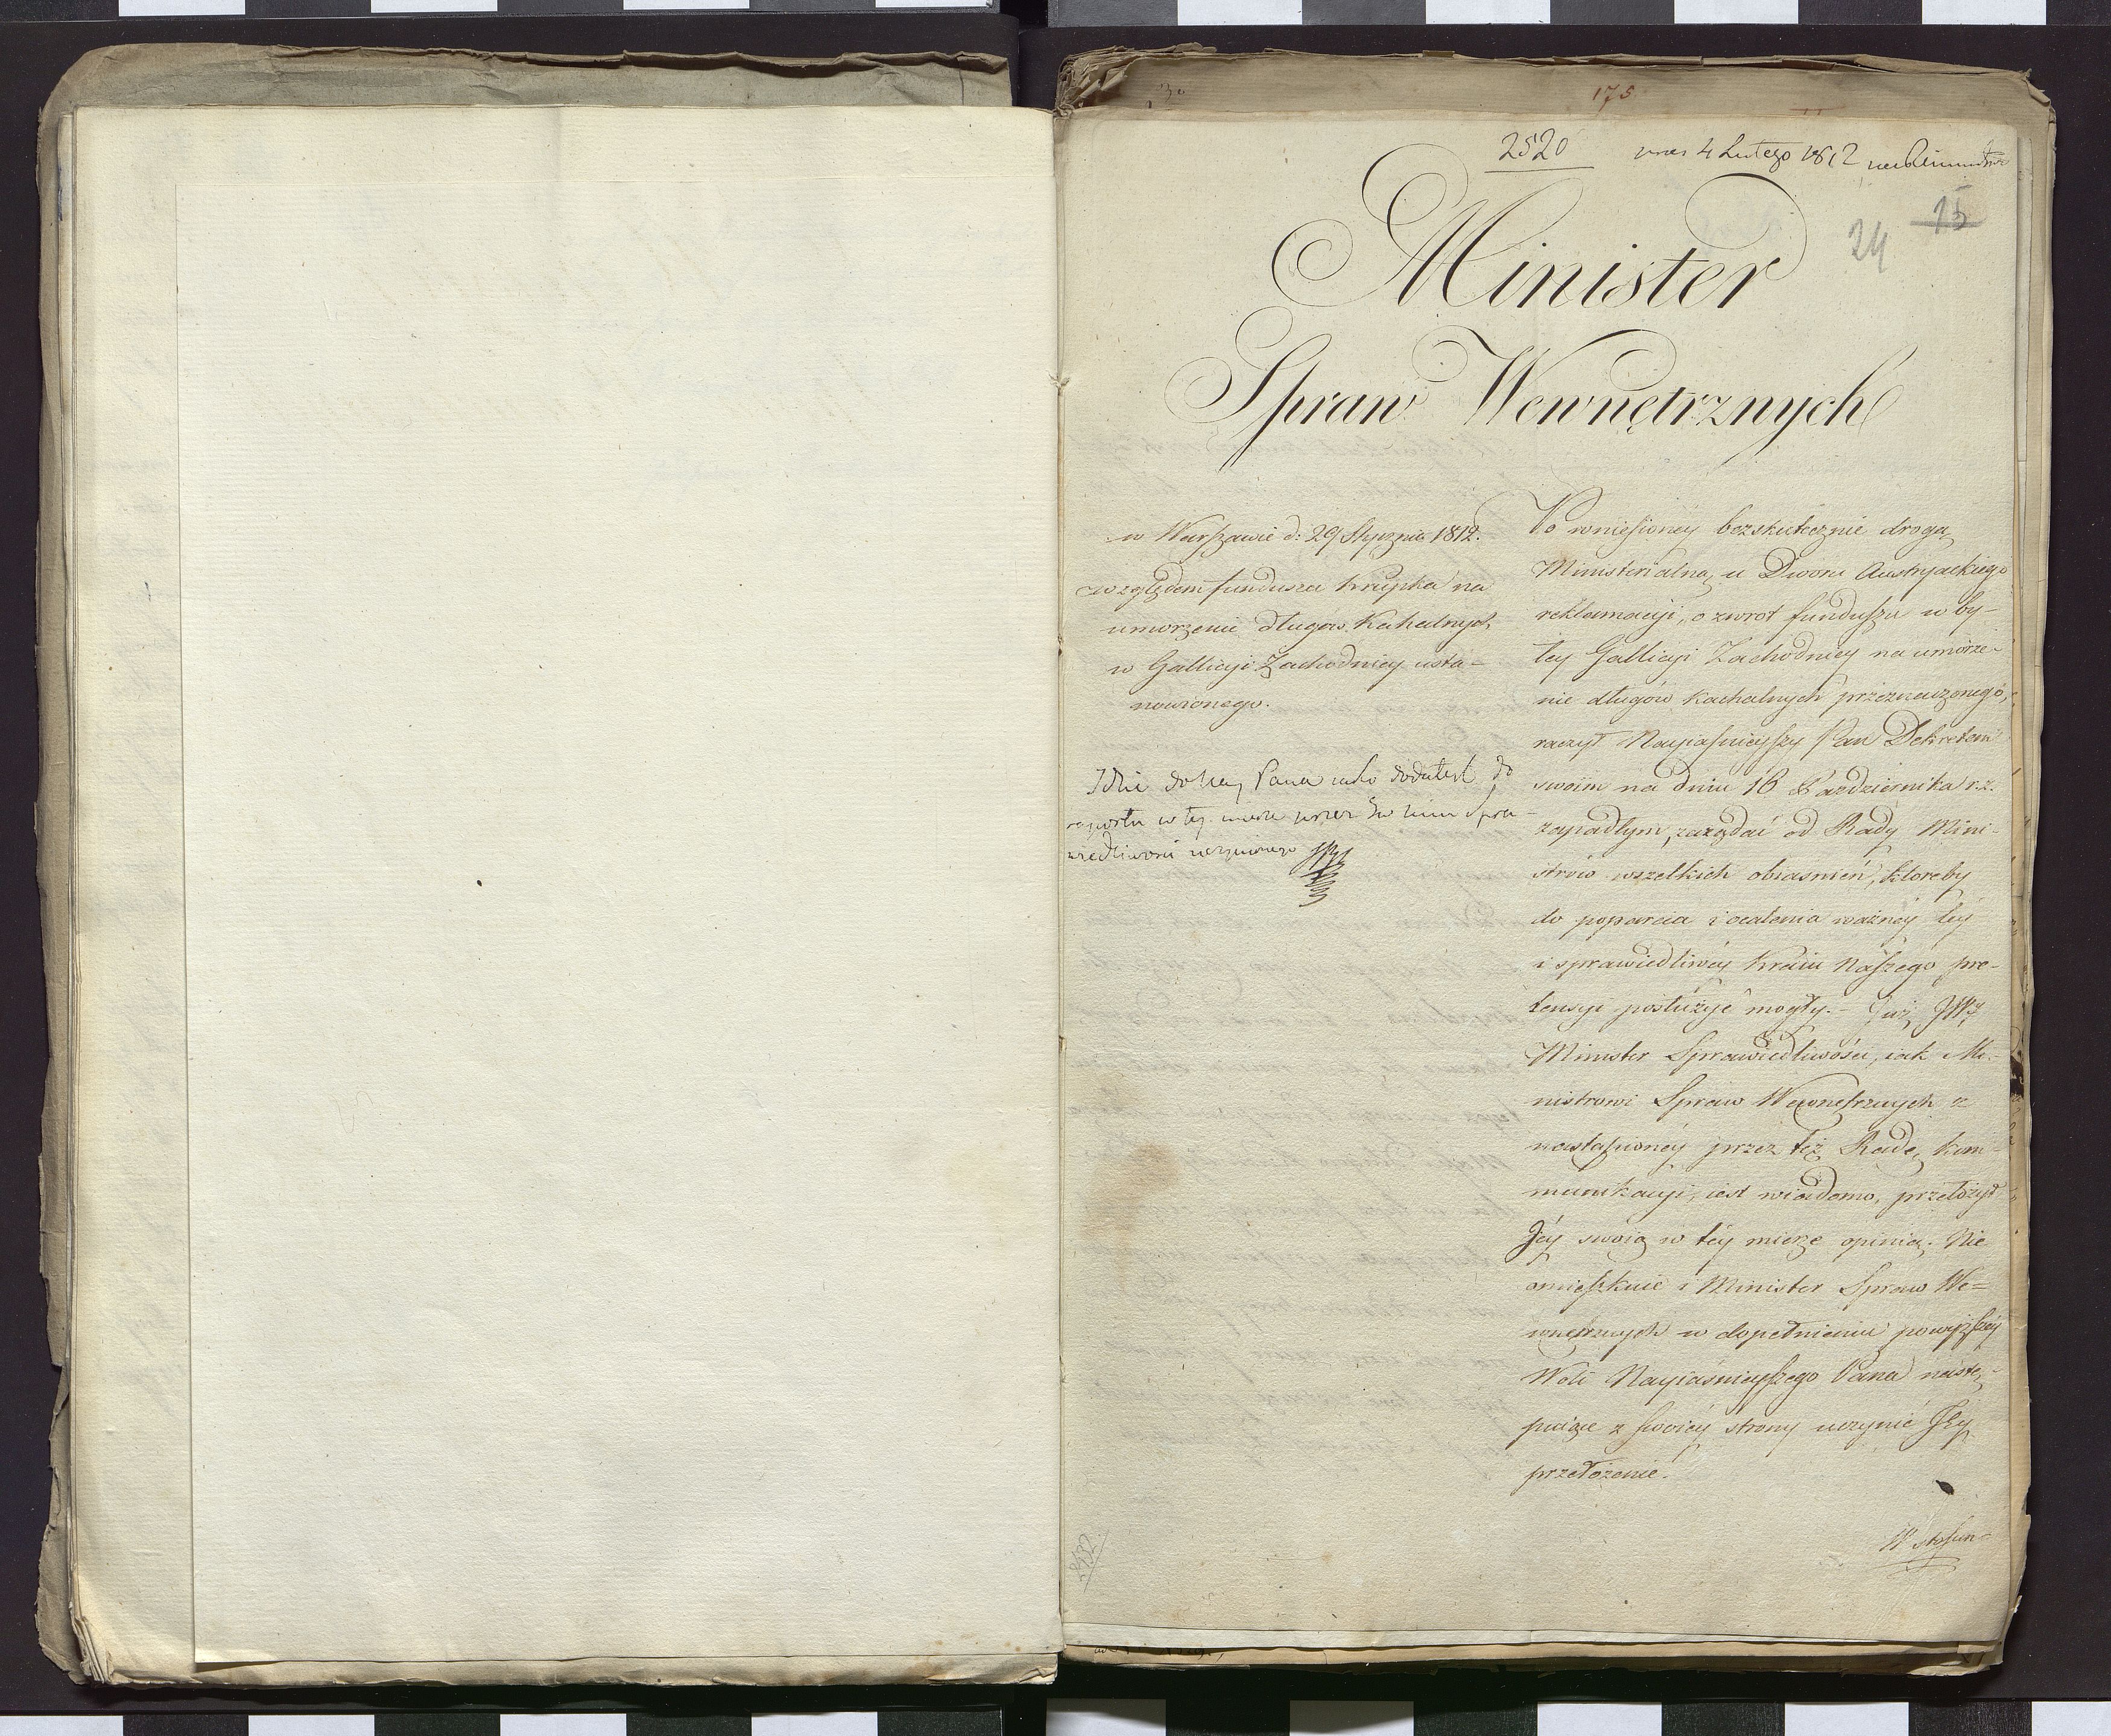 175
2520
4 Lutego 1812
15
24
Minister
Spraw Wewnętrznych
w Warszawie d: 29 Stycznia 1812.
względem funduszu Krupka na
umorzenie długów Kahalnych
w Gallicyi Zachodniey usta-
nowionego.
Idzie do Nay Pana iako dodatek do
raportu w tey mierze przez Min Spra-
wiedliwości uczynionego
Po wniesioney bezskutecznie drogą
Ministeryalną u Dworu Austryackiego
reklamacyi, o zwrot funduszu w by-
łey Gallicyi Zachodniey na umorze-
nie długów Kachalnych przeznaczonego,
raczył Nayiaśnieyszy Pan Dekretem
swoim na dniu 16 Października r.z.
zapadłym, zażądać od Rady Mini-
strów wszelkich obiasnień, ktoreby
do poparcia i ocalenia ważney tey
i sprawiedliwey Kraiu Naszego pre-
tensyi posłużyć mogły. - Już JW
Minister Sprawiedliwości, iak Mi-
nistrowi Spraw Wewnętrznych z
nastąpioney przez też Radę kom-
munikacyi, iest wiadomo, przełożył
Jey swoią w tey mierze opinią. Nie
omieszkuie i Minister Spraw We-
wnętrznych w dopełnieniu powyższey
Woli Nayiaśnieyszego Pana nastę-
puiące z swoiey strony uczynić Jey
przełożenie.
W stosun-